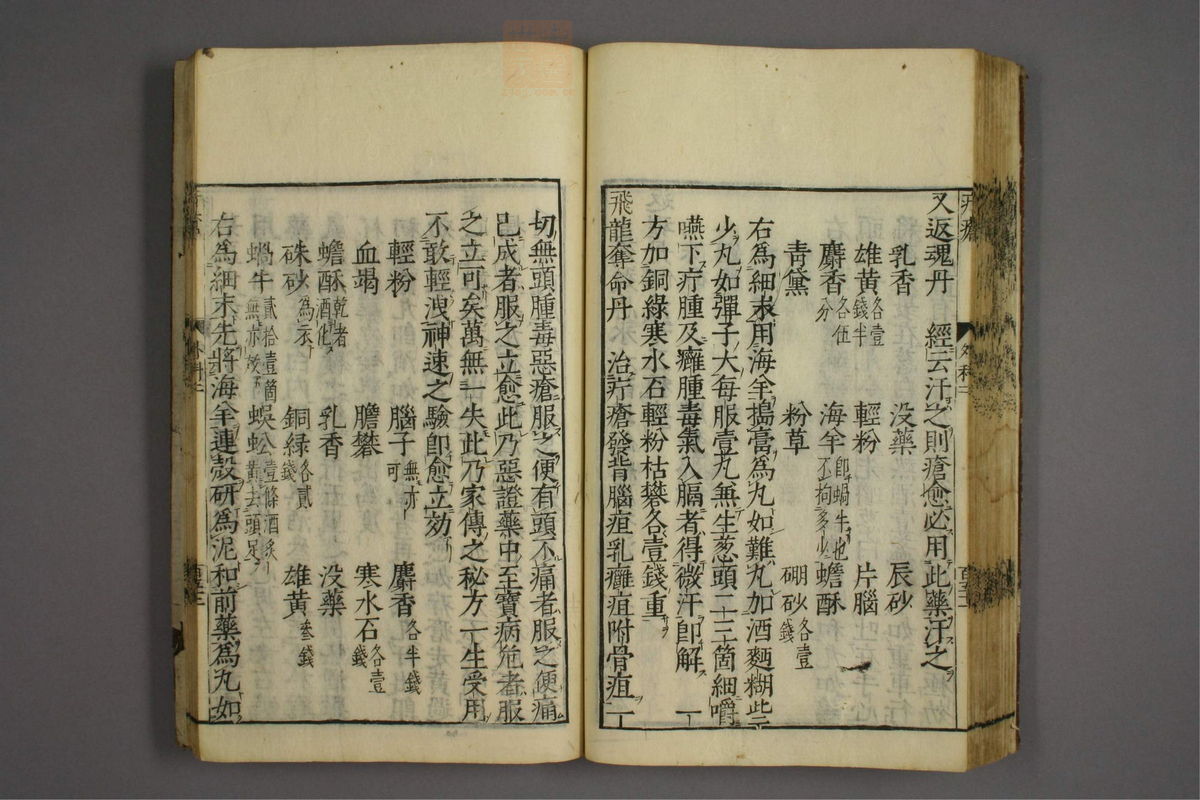 又返魂丹 經云汗之則瘡愈必用此藥汗之
乳香 没藥 辰砂
雄黄各壹錢半 輕粉 片腦
麝香各伍分 海羊即蝸牛也不拘多少 蟾酥
青黛 粉草 硼砂各壹錢
右爲細末用海羊搗膏爲丸如難丸加酒麪糊些
少丸如彈子大每服壹丸無生葱頭二三箇細嚼
嚥下疔腫及癰腫毒氣入膈者得微汗即解 一
方加銅綠寒水石輕粉枯礬各壹錢重
飛龍奪命丹 治疔瘡發背腦疽乳癰疽附骨疽一
切無頭腫毒惡瘡服之便有頭不痛者服之便痛
已成者服之立愈此乃惡證藥中至寶病危者服
之立可矣萬無一失此乃家傳之秘方一生受用
不敢輕洩神速之驗即愈立効
輕粉 腦子無亦可 麝香各半錢
血竭 膽礬 寒水石各壹錢
蟾酥乾者酒化 乳香 没藥
硃砂爲衣 銅綠各貳錢 雄黄叁錢
蝸牛貳拾壹箇無亦效 蜈蚣壹條酒炙黄去頭足
右爲細末先將海羊連殼研爲泥和前藥爲丸如